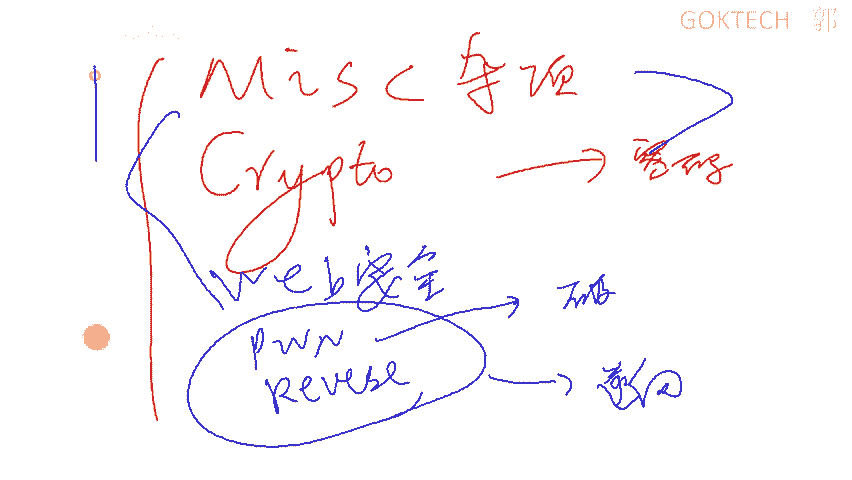 GOKTECH 郭
Misc 杂项
Crypto → 密码
Web安全
PWN → 破
Reverse → 逆向